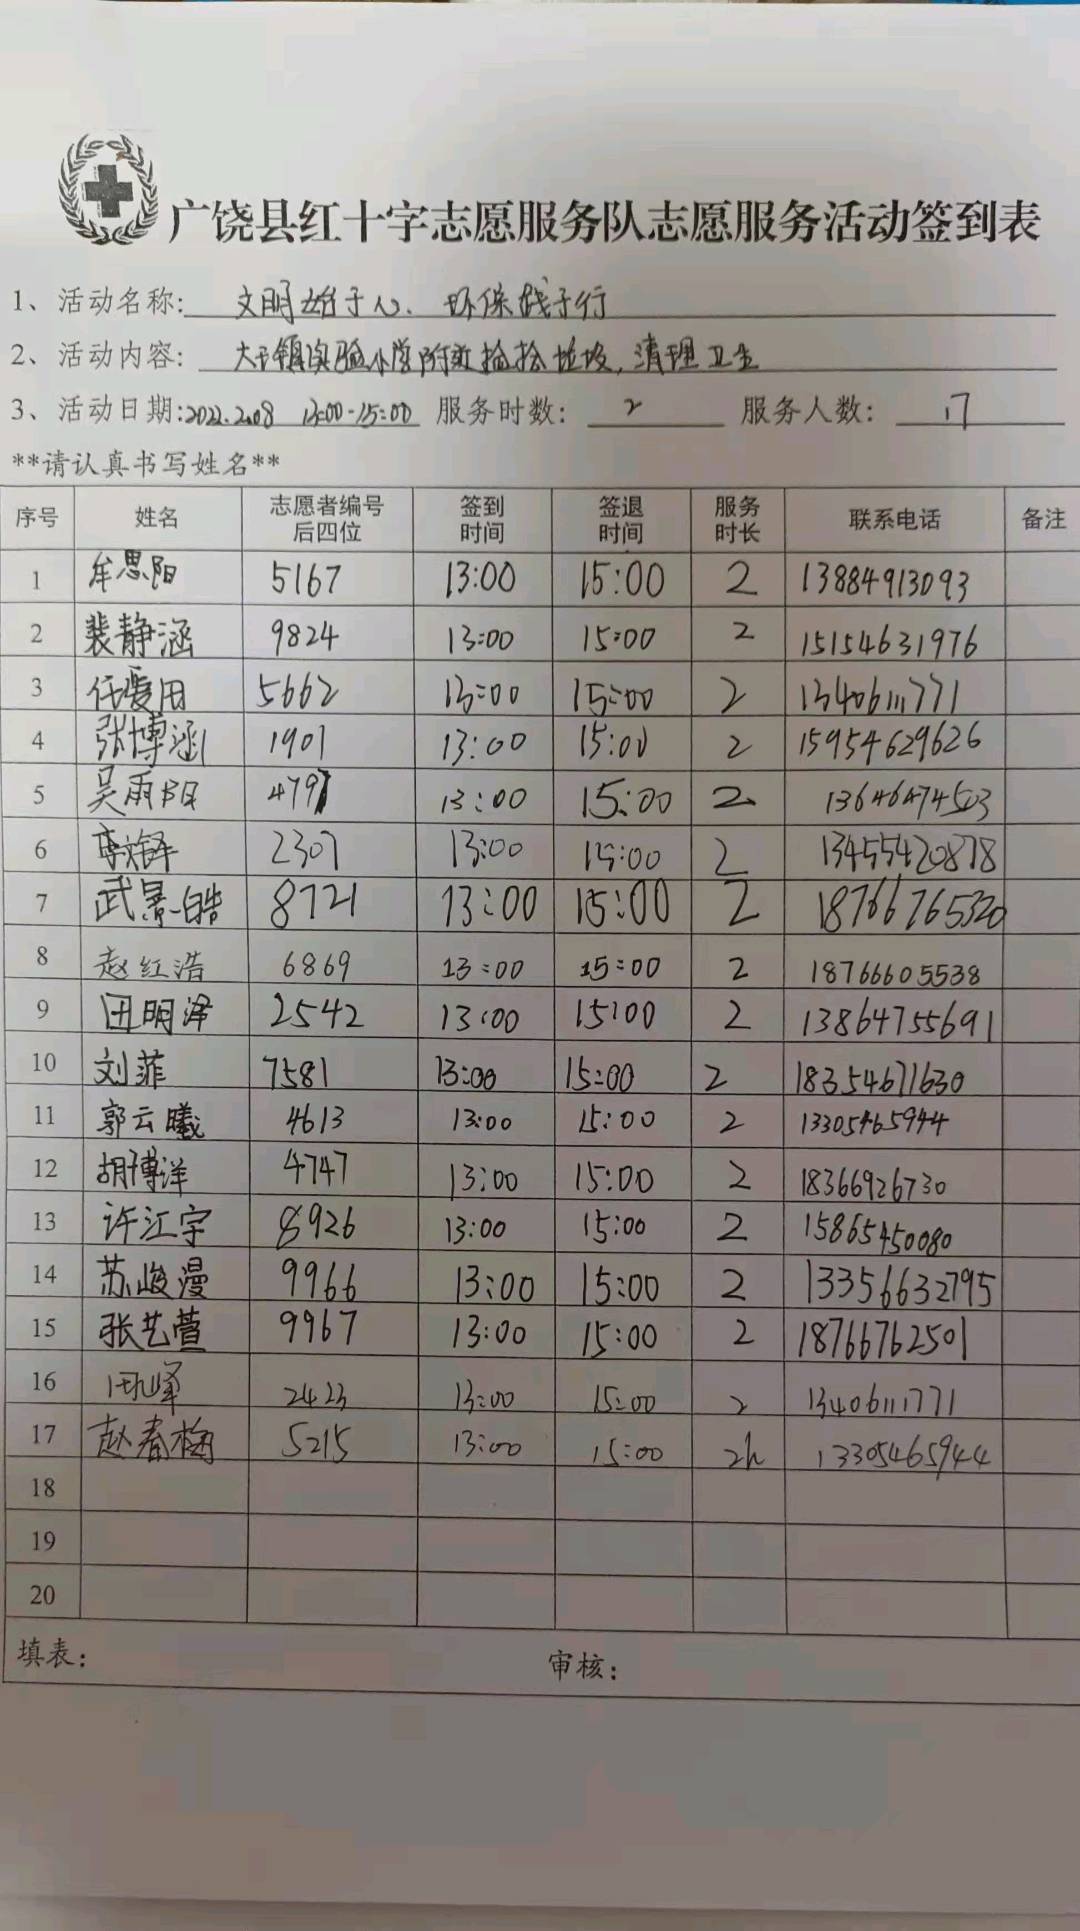 广饶县红十字志愿服务队志愿服务活动签到表
1、活动名称: 文明始于心、环保践于行
2、活动内容: 大王镇实验小学附近捡拾垃圾,清理卫生
3、活动日期:2022.2.08 13:00-15:00 服务时数: 2 服务人数: 17
**请认真书写姓名**
序号 姓名 志愿者编号后四位 签到时间 签退时间 服务时长 联系电话 备注
1 牟思阳 5167 13:00 15:00 2 13884913093
2 裴静涵 9824 13:00 15:00 2 15154631976
3 任爱用 5662 13:00 15:00 2 13406111771
4 张博涵 1901 13:00 15:00 2 15954629626
5 吴雨阳 4797 13:00 15:00 2 13646474503
6 2307 13:00 15:00 2 13455420878
7 武景皓 8721 13:00 15:00 2 18766765320
8 赵红浩 6869 13:00 15:00 2 18766605538
9 田明泽 2542 13:00 15:00 2 13864755691
10 刘菲 7581 13:00 15:00 2 18354671630
11 郭云曦 4613 13:00 15:00 2 13305465944
12 胡博洋 4747 13:00 15:00 2 18366926730
13 许江宇 8926 13:00 15:00 2 15865450080
14 苏峻漫 9966 13:00 15:00 2 13356632795
15 张艺萱 9967 13:00 15:00 2 18766762501
16 2423 13:00 15:00 2 13406111771
17 赵春梅 5215 13:00 15:00 2h 13305465944
18
19
20
填表: 审核: